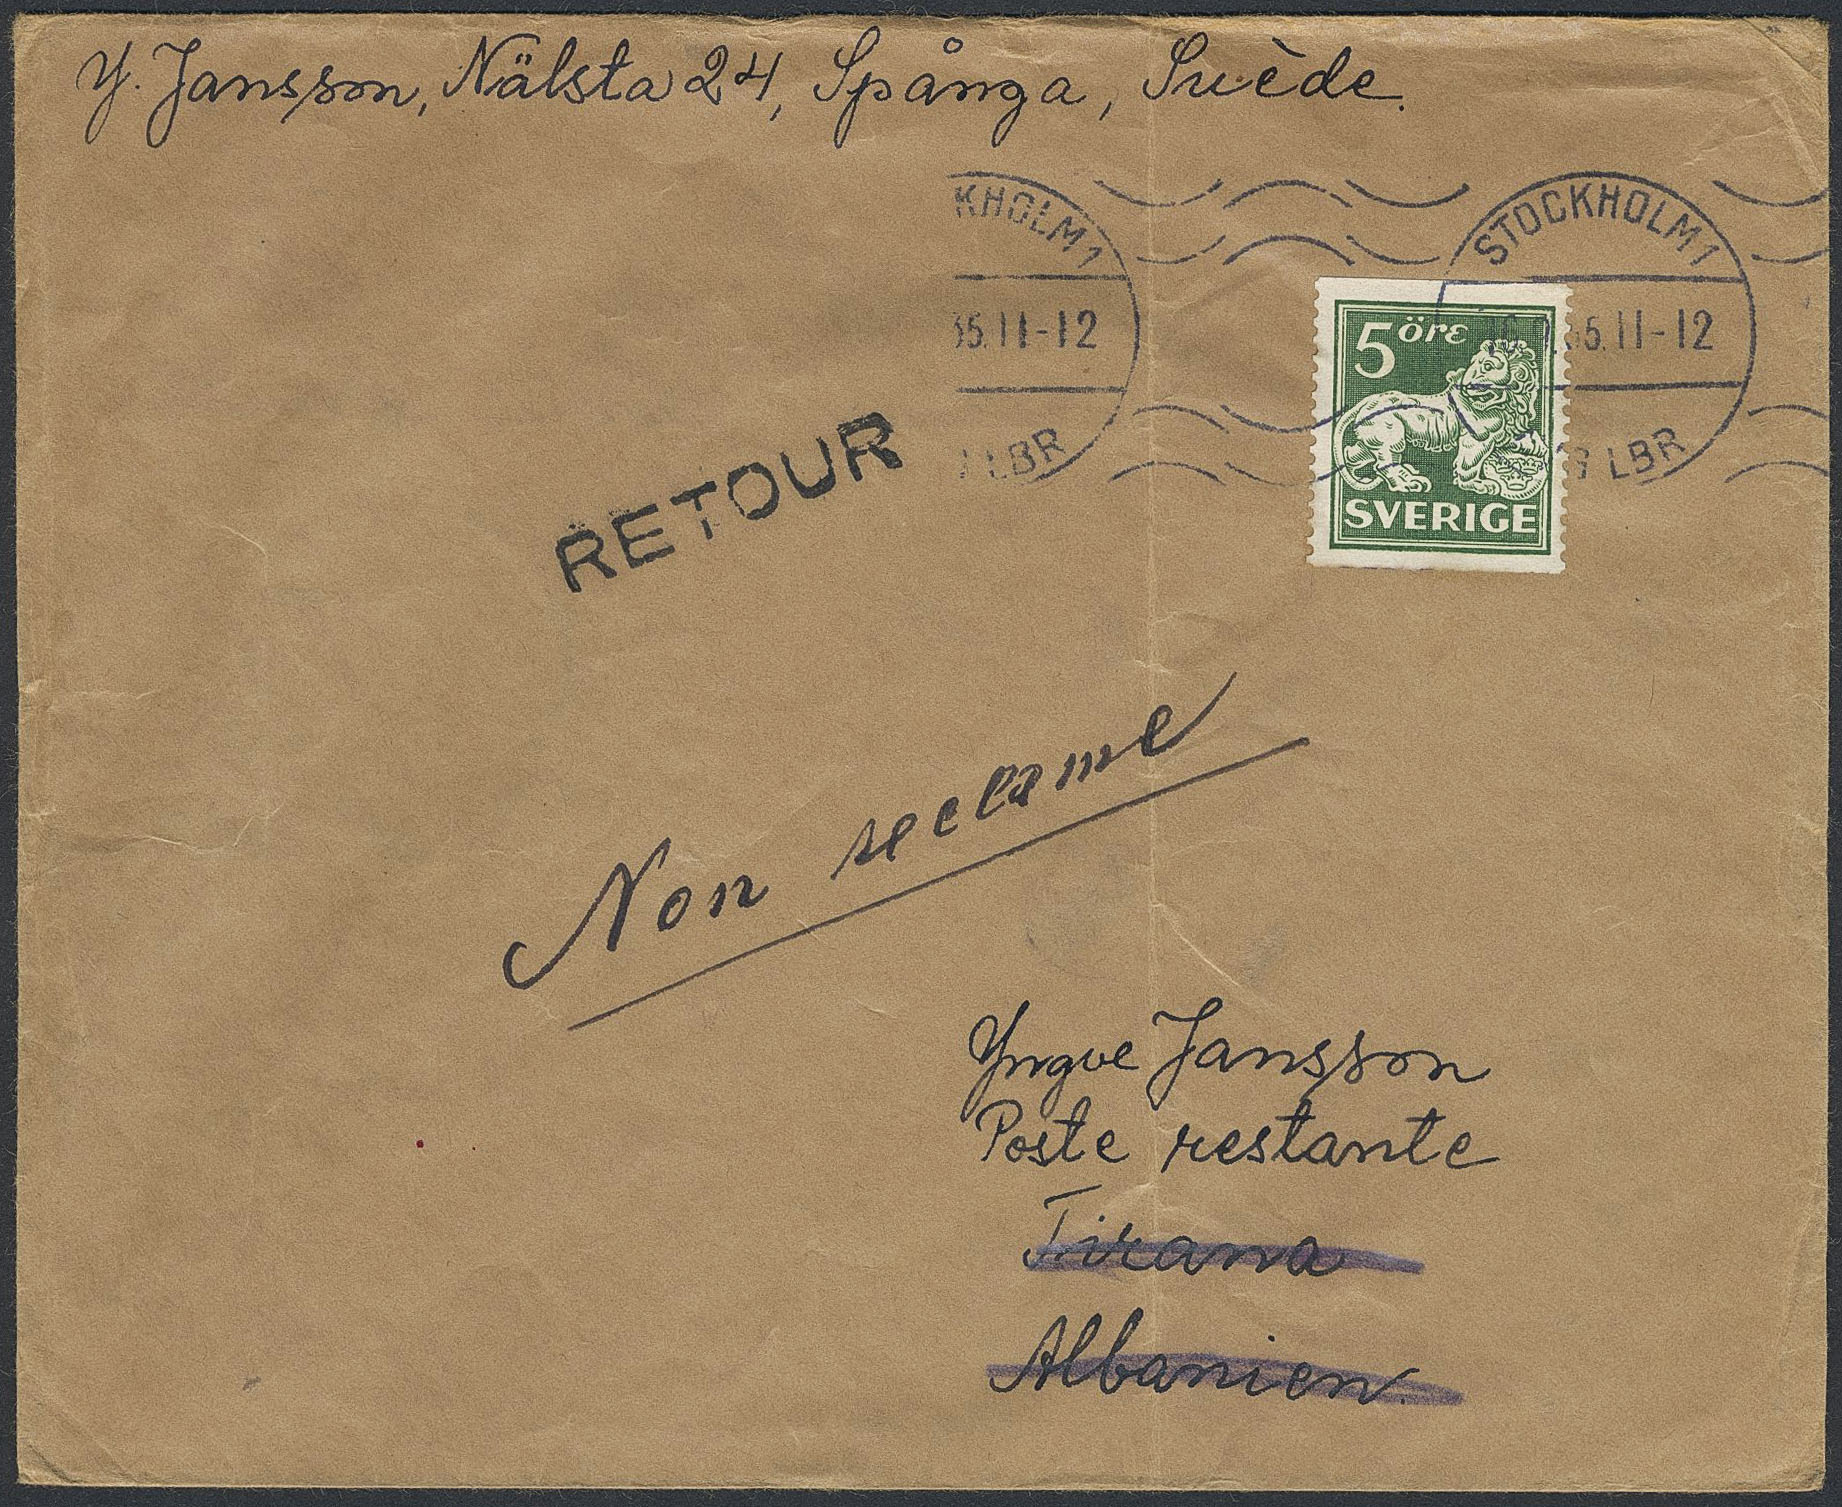 Y. Jansson, Nälsta 24, Spånga, Suède.
KHOLM 1
35.11-12
LBR
STOCKHOLM 1
35.11-12
LBR
5 öre
SVERIGE
RETOUR
Non reclame
Yngve Jansson
Poste restante
Tirana
Albanien.